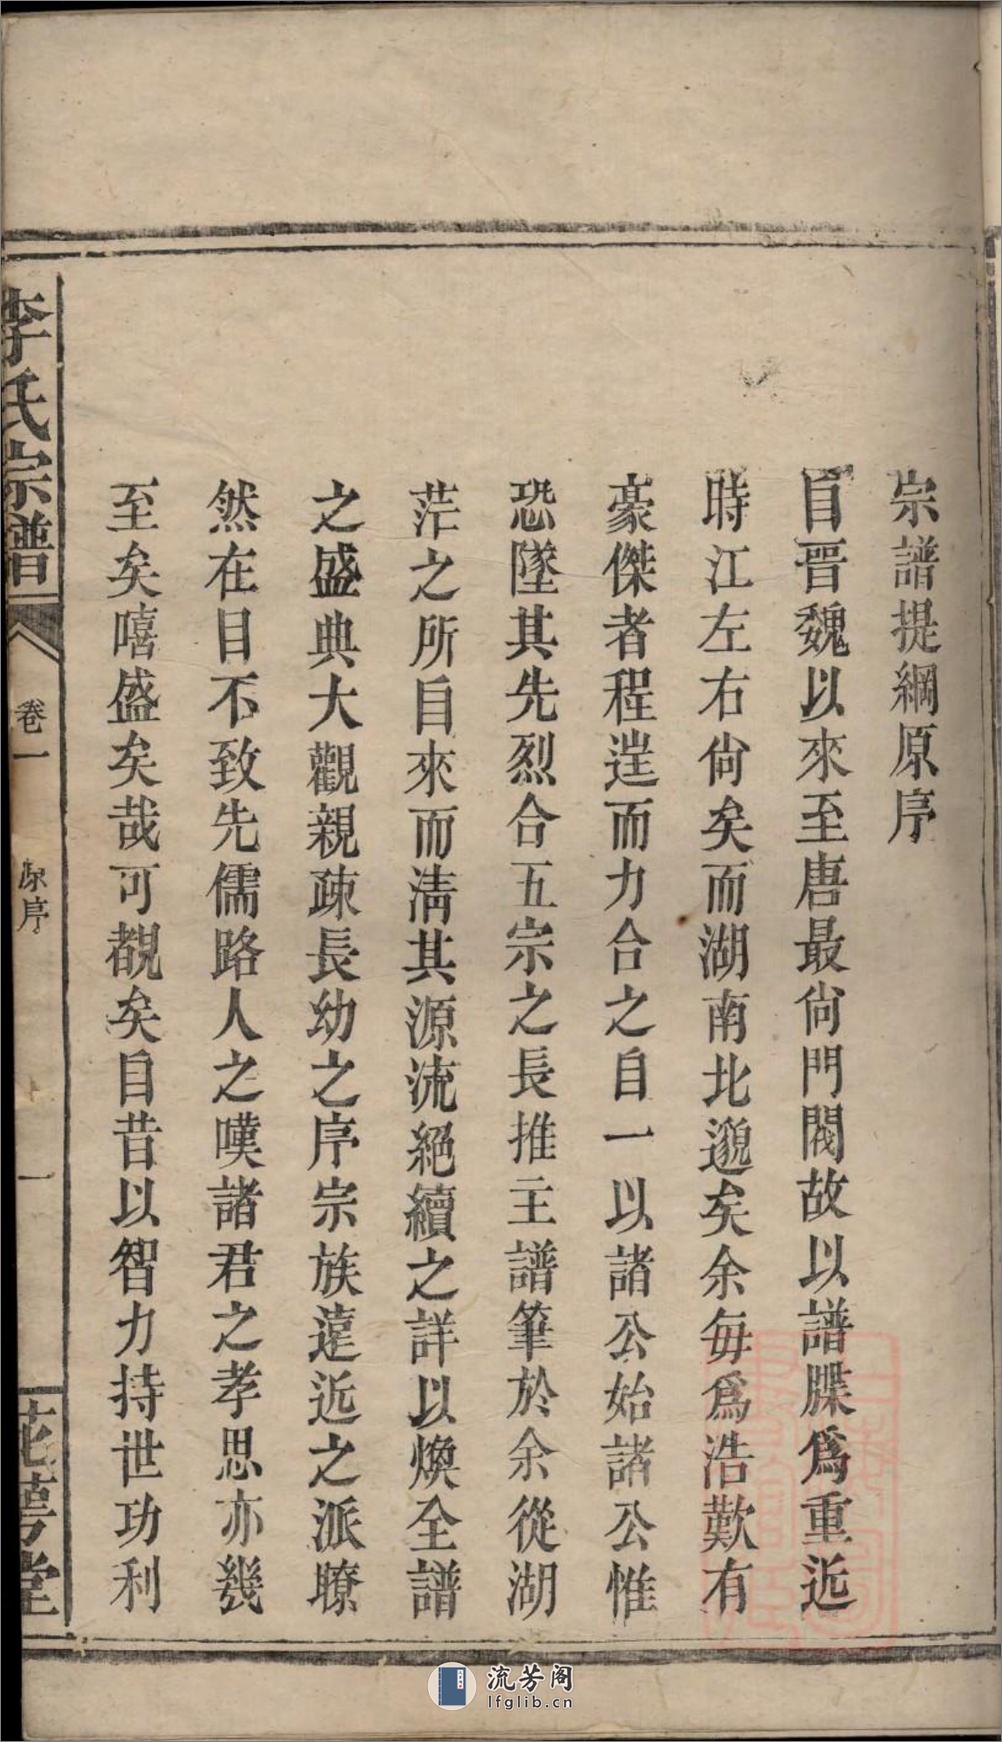 宗譜提綱原序
自晉魏以來至唐最尙門閥故以譜牒爲重近
時江左右尙矣而湖南北邈矣余每爲浩歎有
豪傑者程逵而力合之自一以諸公始諸公惟
恐墜其先烈合五宗之長推主譜筆於余從湖
茫之所自來而淸其源流絕續之詳以煥全譜
之盛典大觀親疎長幼之序宗族遠近之派瞭
然在目不致先儒路人之嘆諸君之孝思亦幾
至矣嘻盛矣哉可覩矣自昔以智力持世功利
李氏宗譜
卷一
原序
一
花萼堂
流芳阁
lfglib.cn